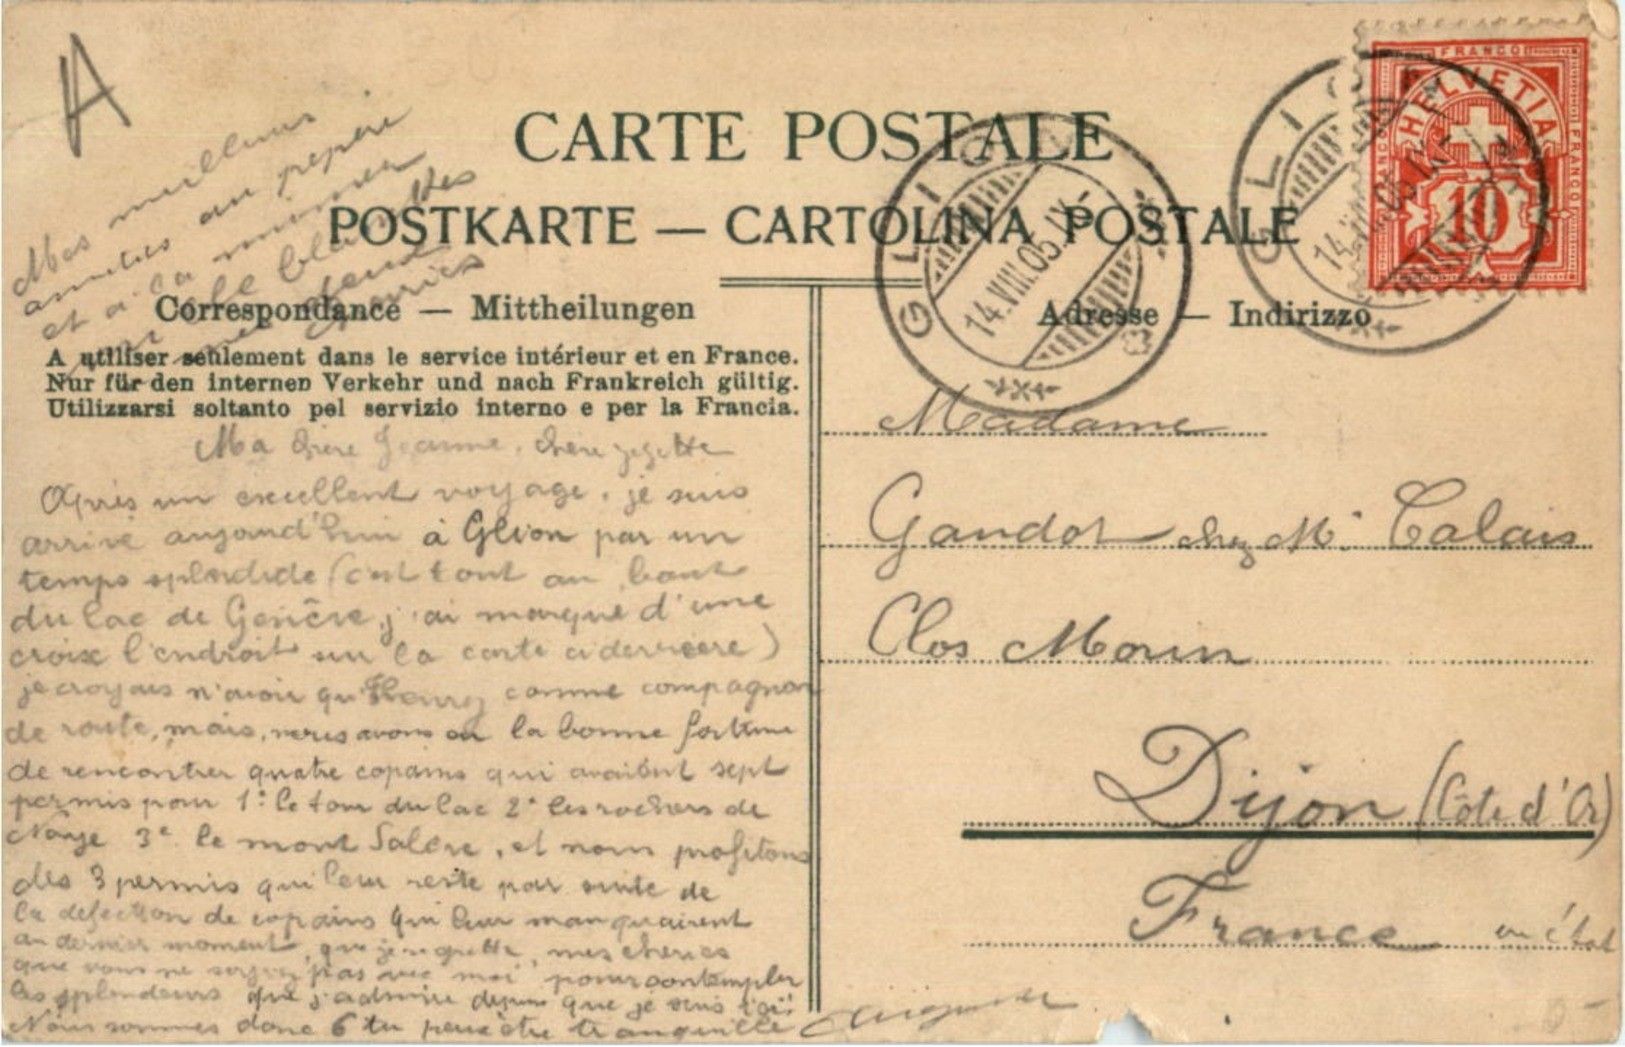 A
Mes meilleurs
amitiés au pépère
et à la mimer
CARTE POSTALE
POSTKARTE — CARTOLINA POSTALE
Correspondance — Mittheilungen
A utiliser seulement dans le service intérieur et en France.
Nur für den internen Verkehr und nach Frankreich gültig.
Utilizzarsi soltanto pel servizio interno e per la Francia.
Ma chère Jeanne, chère zezette
Après un excellent voyage, je suis
arrivé aujourd'hui à Glion par un
temps splendide (c'est tout au bout
du lac de Genève, j'ai marqué d'une
croix l'endroit sur la carte ci derrière)
je croyais n'avoir qu'Henry comme compagnon
de route, mais, nous avons eu la bonne fortune
de rencontrer quatre copains qui avaient sept
permis pour 1º le tour du lac 2º les rochers de
Naye 3º le mont Salève, et nous profitons
des 3 permis qui leur reste par suite de
la défection de copains qui leur manquairent
au dernier moment, que je regrette, mes chéries
que vous ne soyez pas avec moi pour contempler
les splendeurs que j'admire depuis que je suis ici
Nous sommes donc 6 tu peux être tranquille
Adresse — Indirizzo
GLION
14.VIII.05.IX-
FRANCO
HELVETIA
FRANCO
FRANCO
10
GLION
14.VIII.05.IX-
Madame
Gandot chez Mr Calais
Clos Morin
Dijon (Côte d'Or)
France